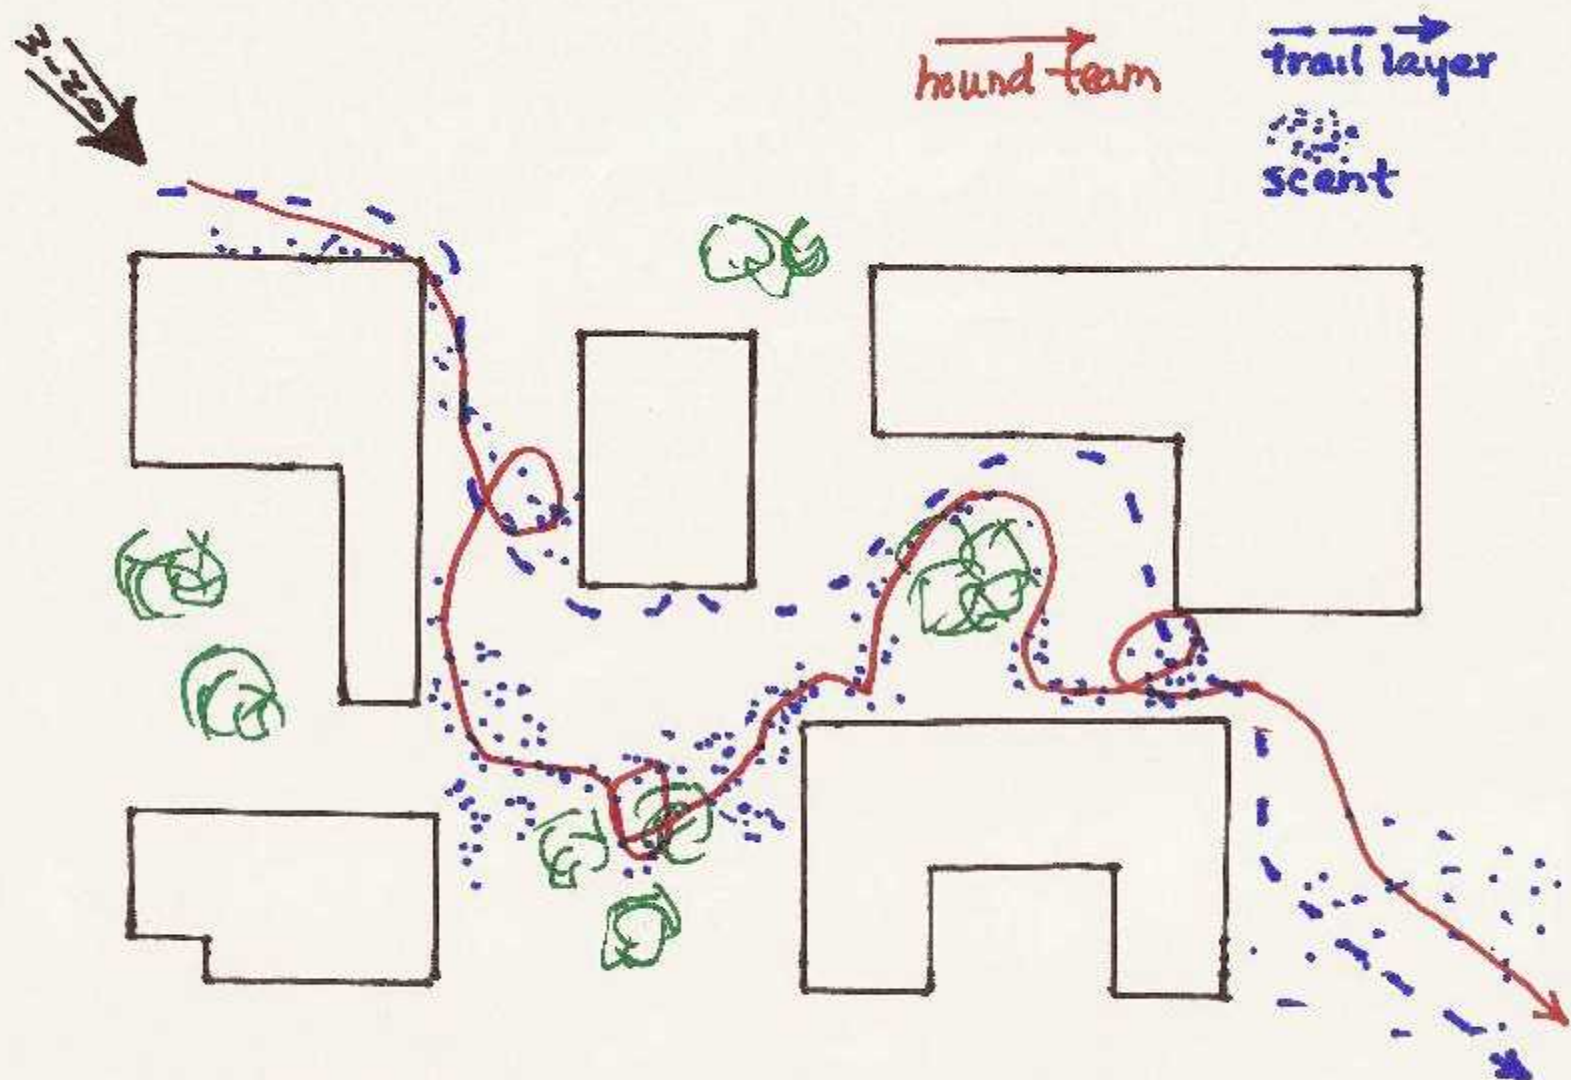 WIND
hound team
trail layer
scent